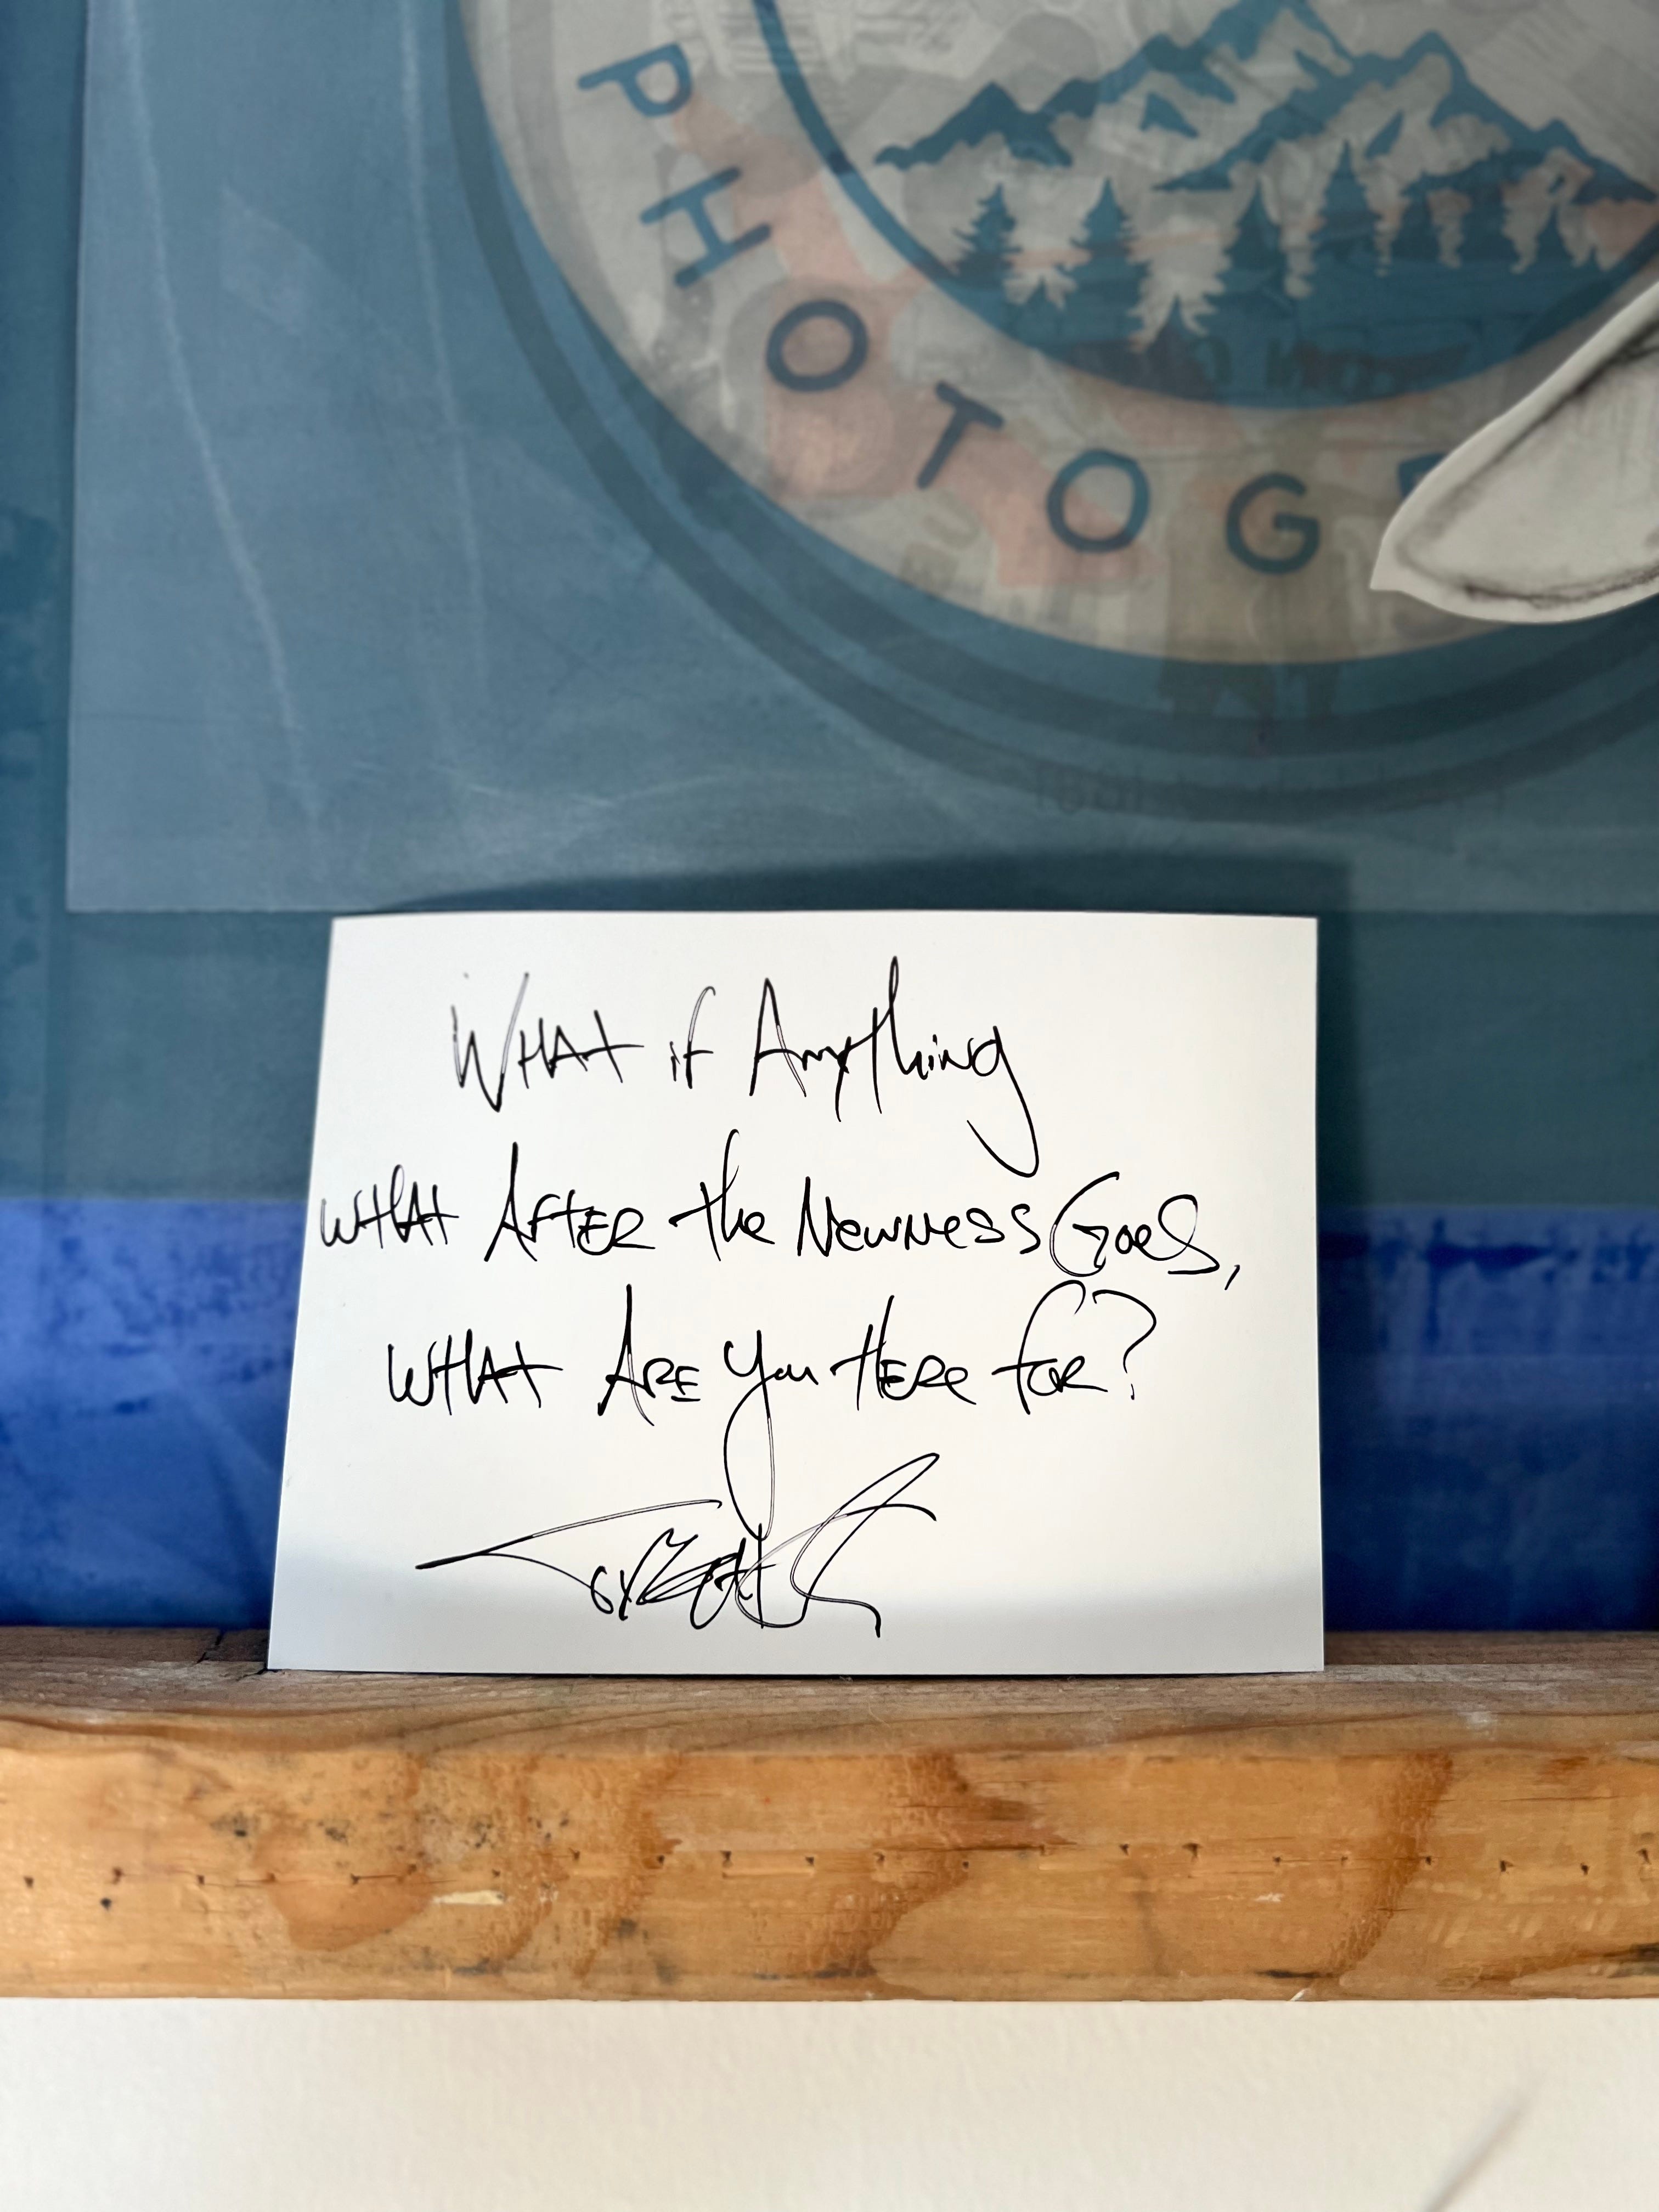 PHOTOG
What if Anything
WHAT AFTER the NewNess Goes,
WHAT ARE you HERe FOR?